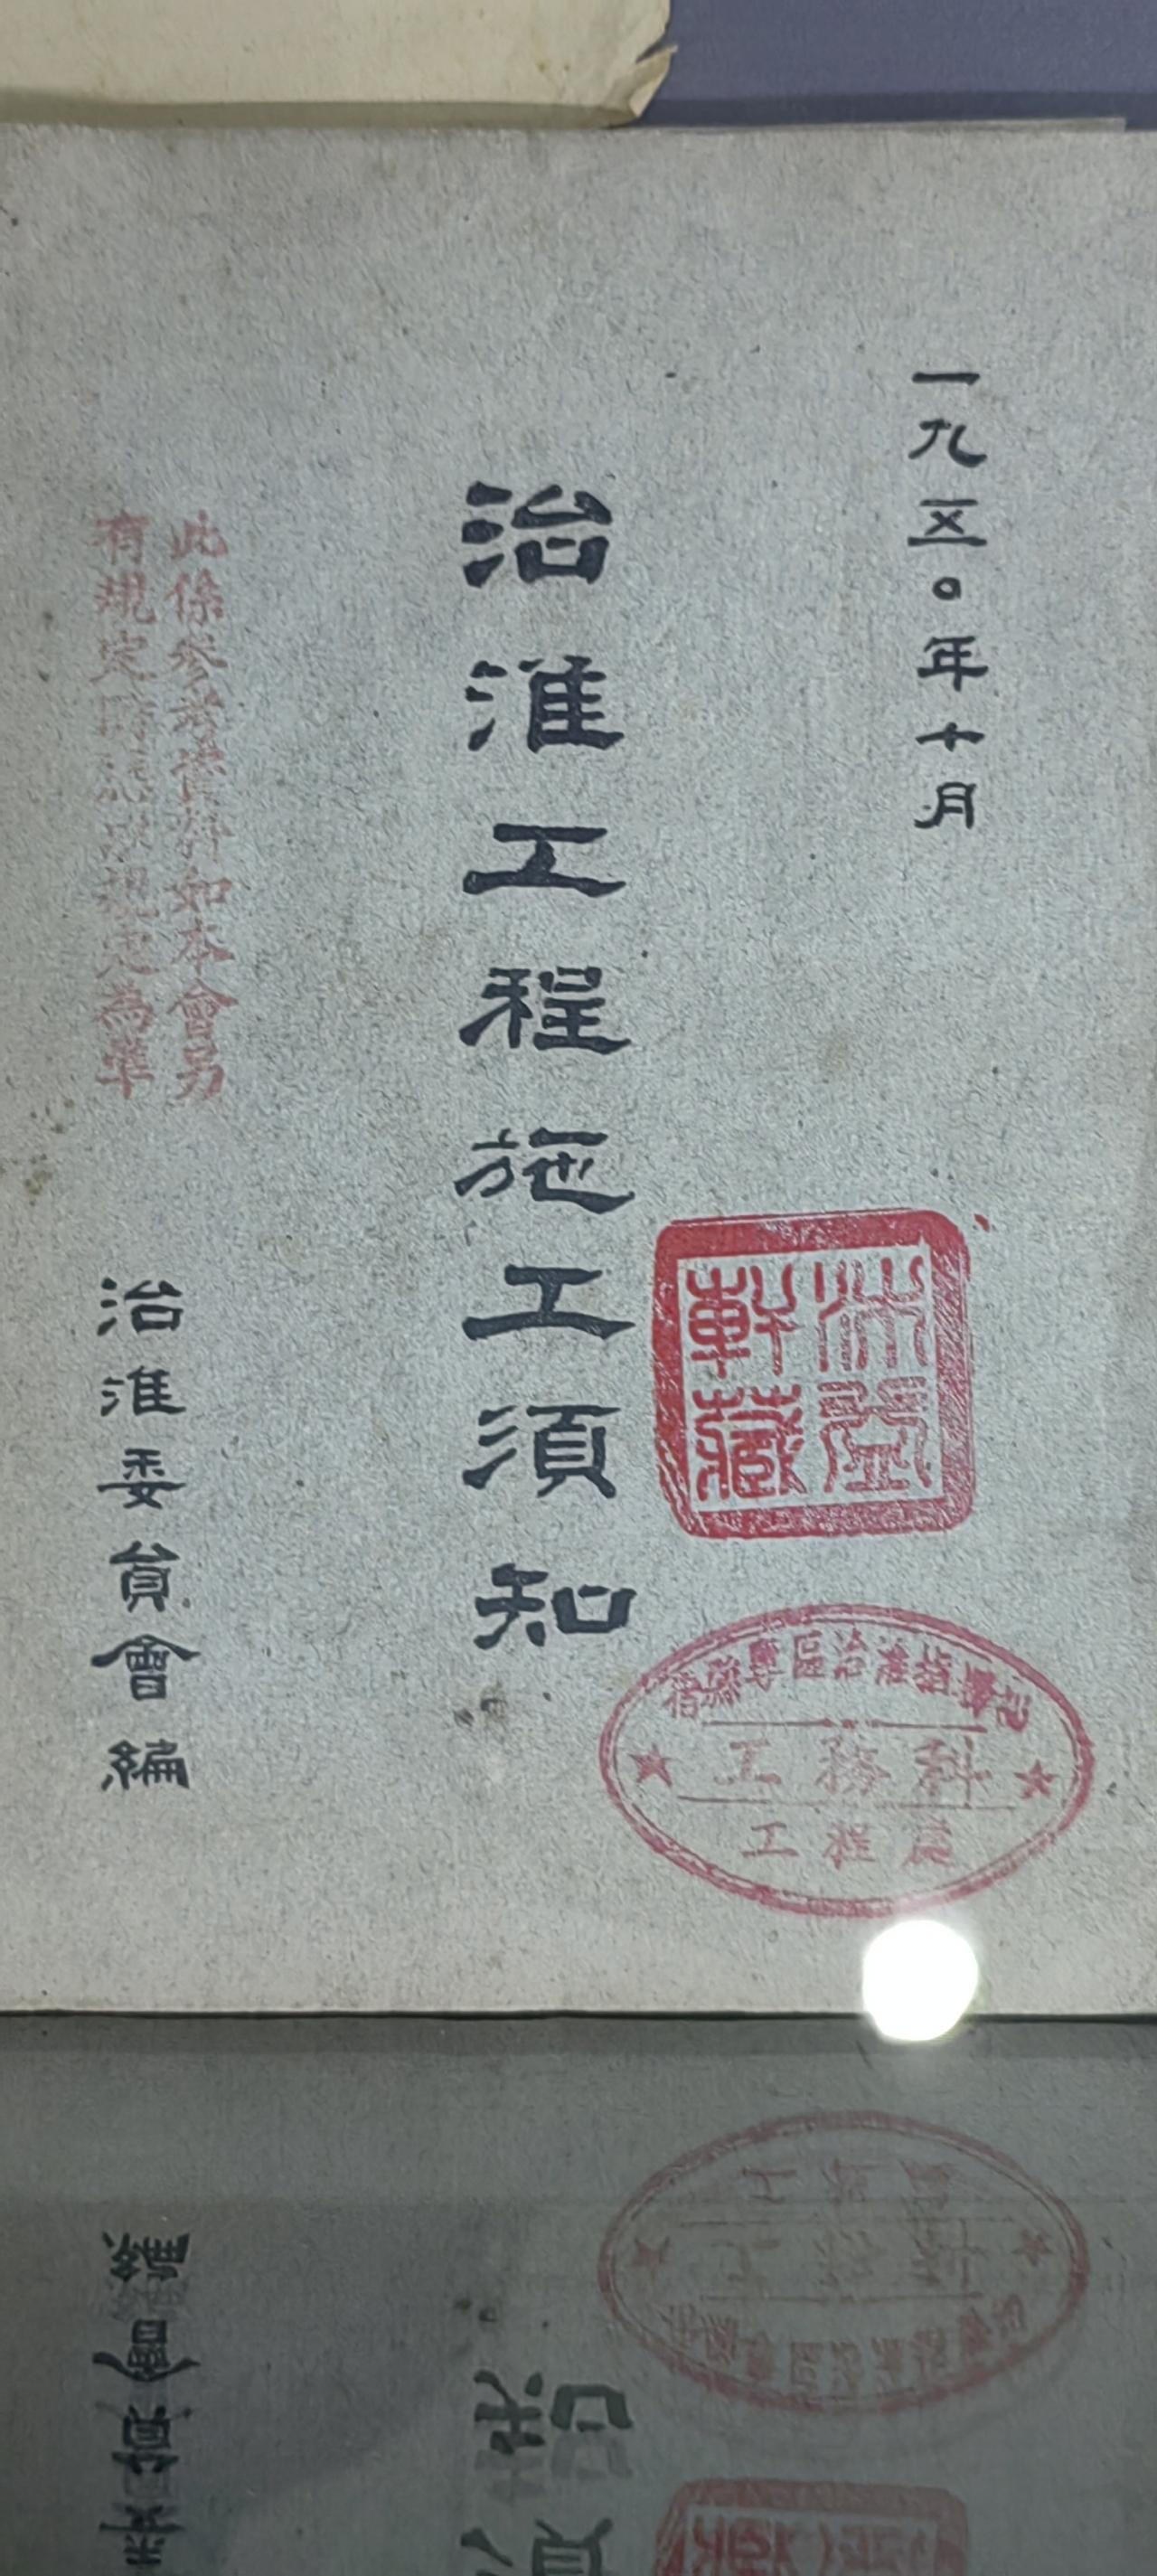 一九五〇年十月
治淮工程施工須知
此係參考資料如本會另
有規定時應以規定為準
治淮委員會編
軒藏
宿縣專區治淮指揮部
工務科
工程處